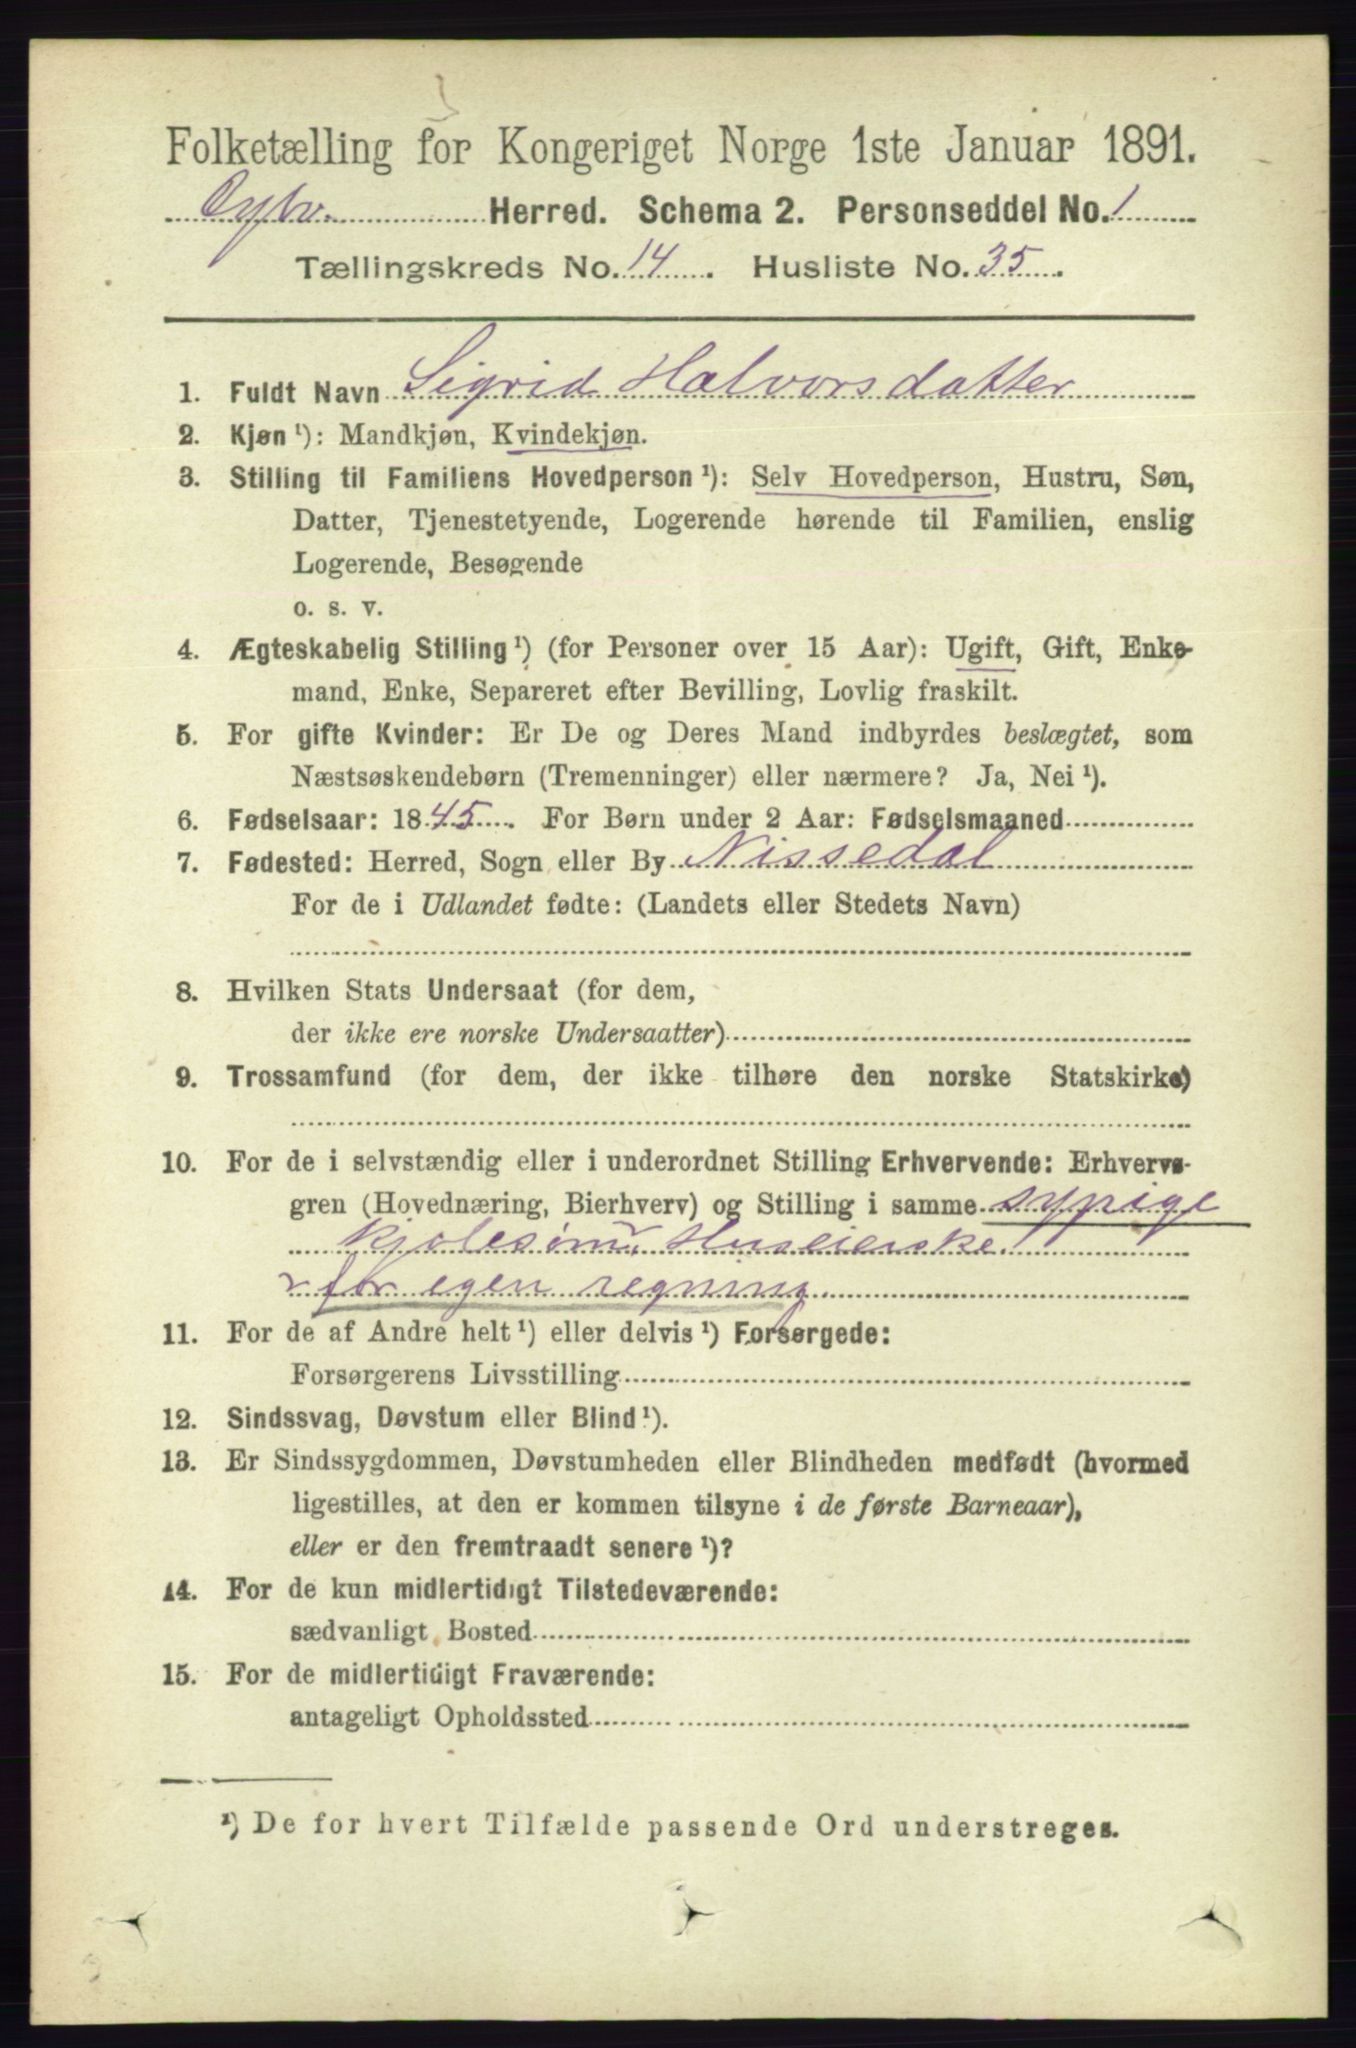 Folketælling for Kongeriget Norge 1ste Januar 1891.
Herred. Schema 2. Personseddel No. 1
Tællingskreds No. 14. Husliste No. 35.
1. Fuldt Navn Sigrid Halvorsdatter
2. Kjøn ¹): Mandkjøn, Kvindekjøn.
3. Stilling til Familiens Hovedperson ¹): Selv Hovedperson, Hustru, Søn,
Datter, Tjenestetyende, Logerende hørende til Familien, enslig
Logerende, Besøgende
o. s. v.
4. Ægteskabelig Stilling ¹) (for Personer over 15 Aar): Ugift, Gift, Enke-
mand, Enke, Separeret efter Bevilling, Lovlig fraskilt.
5. For gifte Kvinder: Er De og Deres Mand indbyrdes beslægtet, som
Næstsøskendebørn (Tremenninger) eller nærmere? Ja, Nei ¹).
6. Fødselsaar: 1845. For Børn under 2 Aar: Fødselsmaaned
7. Fødested: Herred, Sogn eller By Nissedal
For de i Udlandet fødte: (Landets eller Stedets Navn)
8. Hvilken Stats Undersaat (for dem,
der ikke ere norske Undersaatter)
9. Trossamfund (for dem, der ikke tilhøre den norske Statskirke)
10. For de i selvstændig eller i underordnet Stilling Erhvervende: Erhvervs-
gren (Hovednæring, Bierhverv) og Stilling i samme sypige
Huseierske
for egen regning
11. For de af Andre helt ¹) eller delvis ¹) Forsørgede:
Forsørgerens Livsstilling
12. Sindssvag, Døvstum eller Blind ¹).
13. Er Sindssygdommen, Døvstumheden eller Blindheden medfødt (hvormed
ligestilles, at den er kommen tilsyne i de første Barneaar),
eller er den fremtraadt senere ¹)?
14. For de kun midlertidigt Tilstedeværende:
sædvanligt Bosted
15. For de midlertidigt Fraværende:
antageligt Opholdssted
¹) De for hvert Tilfælde passende Ord understreges.